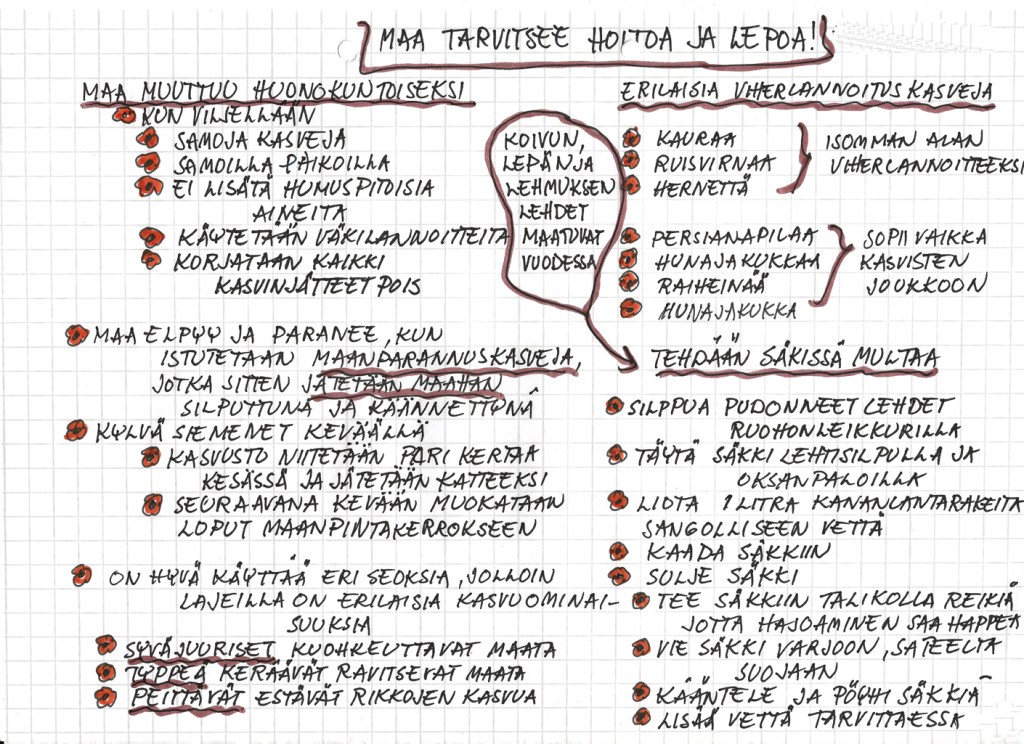 MAA TARVITSEE HOITOA JA LEPOA!
MAA MUUTTUU HUONOKUNTOISEKSI
KUN VILJELLÄÄN
SAMOJA KASVEJA
SAMOILLA PAIKOILLA
EI LISÄTÄ HUMUSPITOISIA
AINEITA
KÄYTETÄÄN VÄKILANNOITTEITA
KORJATAAN KAIKKI
KASVINJÄTTEET POIS
MAA ELPYY JA PARANEE, KUN
ISTUTETAAN MAANPARANNUSKASVEJA,
JOTKA SITTEN JÄTETÄÄN MAAHAN
SILPUTTUNA JA KÄÄNNETTYNÄ
KYLVÄ SIEMENET KEVÄÄLLÄ
KASVUSTO NIITETÄÄN PARI KERTAA
KESÄSSÄ JA JÄTETÄÄN KATTEEKSI
SEURAAVANA KEVÄÄN MUOKATAAN
LOPUT MAANPINTAKERROKSEEN
ON HYVÄ KÄYTTÄÄ ERI SEOKSIA, JOLLOIN
LAJEILLA ON ERILAISIA KASVUOMINAI-
SUUKSIA
SYVÄJUURISET KUOHKEUTTAVAT MAATA
TYPPEÄ KERÄÄVÄT RAVITSEVAT MAATA
PEITTÄVÄT ESTÄVÄT RIKKOJEN KASVUA
KOIVUN,
LEPÄN JA
LEHMUKSEN
LEHDET
MAATUVAT
VUODESSA
ERILAISIA VIHERLANNOITUSKASVEJA
KAURAA
RUISVIRNAA
HERNETTÄ
ISOMMAN ALAN
VIHERLANNOITTEEKSI
PERSIANAPILAA
HUNAJAKUKKAA
RAIHEINÄÄ
HUNAJAKUKKA
SOPII VAIKKA
KASVISTEN
JOUKKOON
TEHDÄÄN SÄKISSÄ MULTAA
SILPPUA PUDONNEET LEHDET
RUOHONLEIKKURILLA
TÄYTÄ SÄKKI LEHTISILPULLA JA
OKSANPALOILLA
LIOTA 1 LITRA KANANLANTARAKEITA
SANGOLLISEEN VETTÄ
KAADA SÄKKIIN
SULJE SÄKKI
TEE SÄKKIIN TALIKOLLA REIKIÄ
JOTTA HAJOAMINEN SAA HAPPEA
VIE SÄKKI VARJOON, SATEELTA
SUOJAAN
KÄÄNTELE JA PÖYHI SÄKKIÄ
LISÄÄ VETTÄ TARVITTAESSA